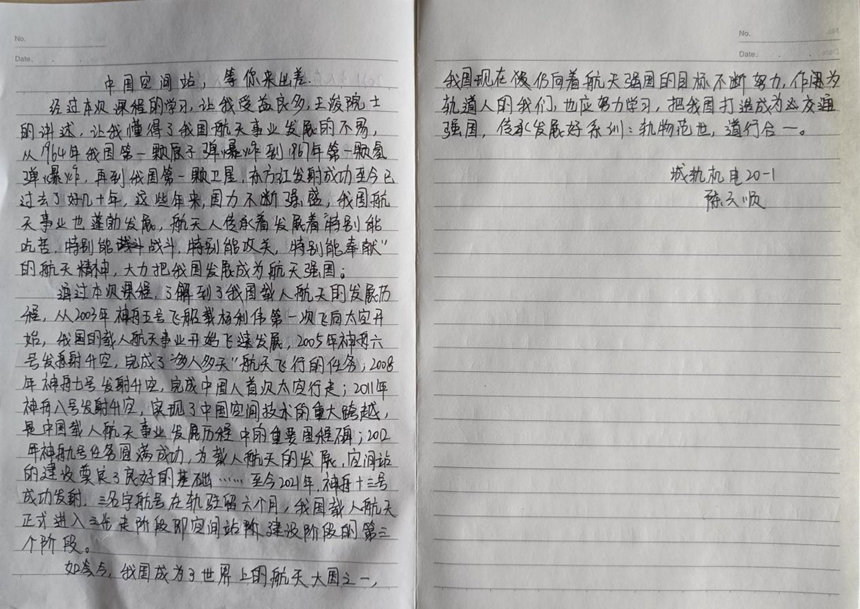 No.
Date.
中国空间站，等你来出差.
经过本次课程的学习，让我受益良多，王浚院士
的讲述，让我懂得了我国航天事业发展的不易，
从1964年我国第一颗原子弹爆炸到1967年第一颗氢
弹爆炸，再到我国第一颗卫星，东方红发射成功至今已
过去了好几十年，这些年来，国力不断强盛，我国航
天事业也蓬勃发展，航天人传承着发展着“特别能
吃苦，特别能战斗，特别能攻关，特别能奉献”
的航天精神，大力把我国发展成为航天强国；
通过本次课程，了解到了我国载人航天的发展历
程，从2003年神舟五号飞船载杨利伟第一次飞向太空开
始，我国的载人航天事业开始飞速发展，2005年神舟六
号发射升空，完成了“多人多天”航天飞行的任务；2008
年神舟七号发射升空，完成中国人首次太空行走；2011年
神舟八号发射升空，实现了中国空间技术的重大跨越，
是中国载人航天事业发展历程中的重要里程碑；2012
年神舟九号任务圆满成功，为载人航天的发展，空间站
的建设奠定了良好的基础……至今2021年，神舟十三号
成功发射，三名宇航员在轨驻留六个月，我国载人航天
正式进入三步走阶段即空间站阶建设阶段的第三
个阶段。
如今，我国成为了世界上的航天大国之一，
No.
Date.
我国现在仍向着航天强国的目标不断努力，作为
轨道人的我们，也应努力学习，把我国打造成为交通
强国，传承发展好系训：轨物范世，道行合一。
城轨机电20-1
陈云顺